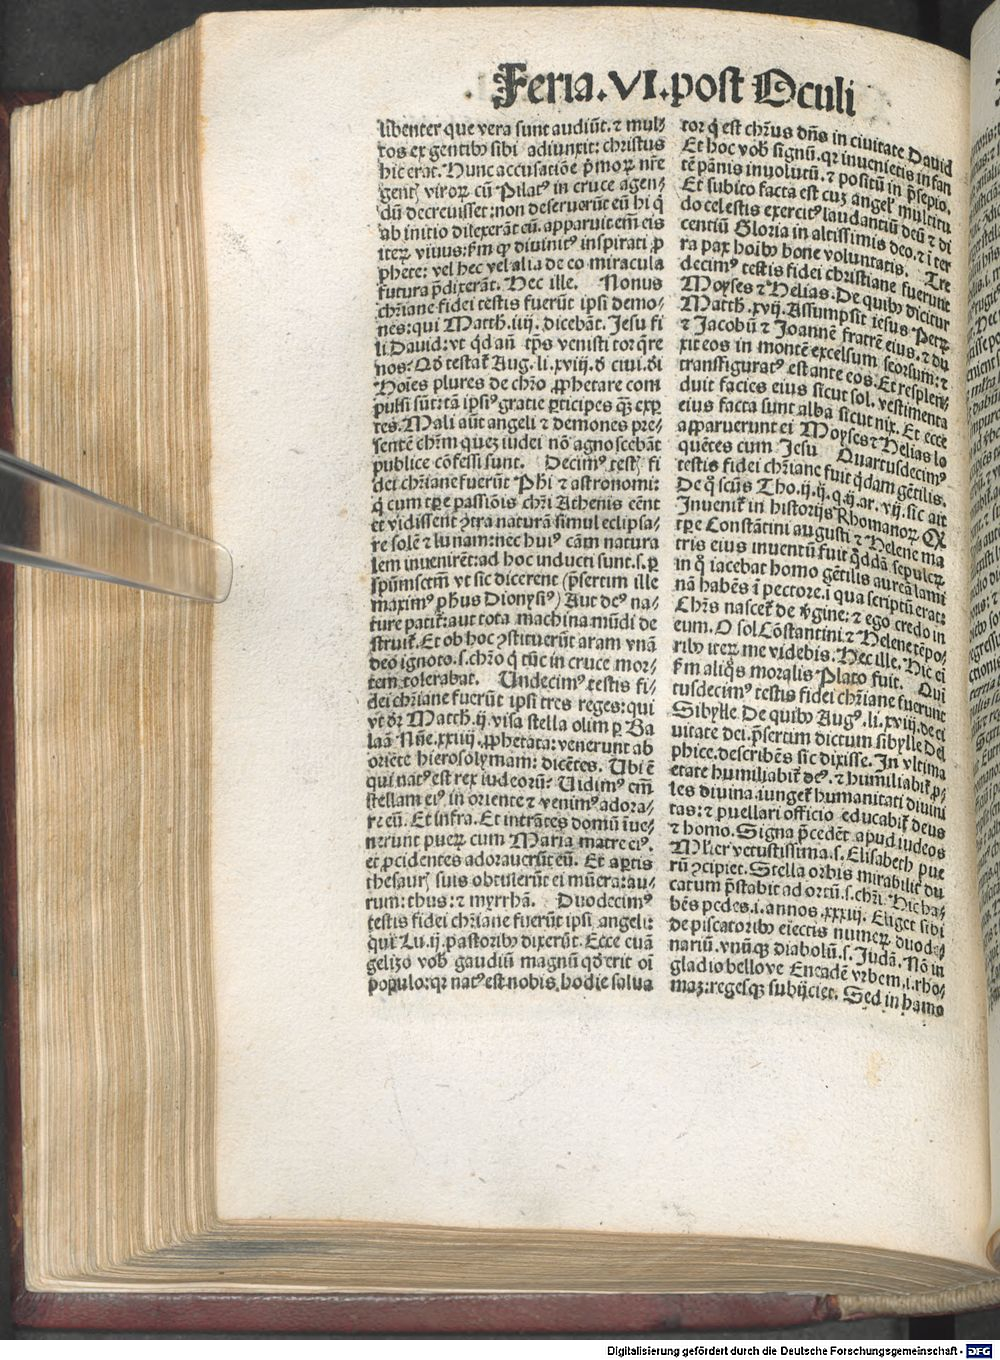 Feria.VI.post Oculi
libenter que vera sunt audiũt.⁊ mul⸗
tos ex gentibꝰ sibi adiunxit: christus
hic erat. Hunc accusatiõe p̃moꝝ nr̃e
gentꝭ viroꝝ cũ Pilatꝰ in cruce agen⸗
dũ decreuisset: non deseruerũt eũ hi q̇
ab initio dilexerãt eũ. apparuit em̃ eis
iteꝝ viuus: ẜm ꝙ diuinitꝰ inspirati ꝓ
phete: vel hec vel alia de eo miracula
futura p̃dixerãt. Hec ille. Nonus
chr̃iane fidei testis fuerũt ipsi demo⸗
nes: qui Matth. iiij. dicebãt. Jesu fi
li Dauid: vt qd añ tp̃s venisti torq̃re
nos: Qđ testat᷑ Aug. li. xviij. đ ciui. đi
Hoĩes plures de chr̃o ꝓphetare com
pulsi sũt: tã ipsiꝰ gratie ꝑticipes q̃ꝫ exꝑ
tes. Mali aũt angeli ⁊ demones pre⸗
sentẽ chr̃m quez iudei nõ agnoscebãt
publice cõfessi sunt. Decimꝰ testꝭ fi
dei chr̃iane fuerũt Phi ⁊ astronomi:
q̇ cum tꝑe passiõis chr̃i Athenis eẽnt
et vidissent ꝯtra naturã simul eclipsa⸗
re solẽ ⁊ lunam: nec huiꝰ cãm natura
lem inuenirẽt: ad hoc inducti sunt. s. ꝑ
spũmsctm̃ vt sic dicerent (p̃sertim ille
maximꝰ phus Dionysiꝰ) Aut deꝰ na⸗
ture patit᷑: aut tota machina mũdi de
struit᷑. Et ob hoc ꝯstituerũt aram vnã
deo ignoto. s. chr̃o q̇ tũc in cruce mor⸗
tem tolerabat. Undecimꝰ testis fi⸗
dei chr̃iane fuerũt ipsi tres reges: qui
vt dr̃ Matth. ij. visa stella olim ꝑ Ba
laã Nũe. xxiiij. ꝓphetata: venerunt ab
oriẽte hierosolymam: dicẽtes. Ubi ẽ
qui natꝰ est rex iudeorũ? Uidimꝰ em̃
stellam eiꝰ in oriente ⁊ venimꝰ adora⸗
re eũ. Et infra. Et intrãtes domũ ĩue⸗
nerunt pueꝝ cum Maria matre eiꝰ.
et ꝓcidentes adorauerũt eũ. Et apꝑtis
thesaurꝭ suis obtulerũt ei mũera: au⸗
rum: thus: ⁊ myrrhã. Duodecimꝰ
testis fidei chr̃iane fuerũt ipsi angeli:
qui Lu. ij. pastoribꝰ dixerũt. Ecce euã
gelizo vob̃ gaudiũ magnũ qđ erit oĩ
populo: qꝛ natꝰ est nobis hodie salua
tor q̇ est chr̃us dñs in ciuitate Dauid
Et hoc vob̃ signũ. qꝛ inuenietis infan
tẽ pãnis inuolutũ. ⁊ positũ in p̃sepio.
Et subito facta est cuꝫ angel᷑ multitu
do celestis exercitꝰ laudantiũ deũ ⁊ di
centiũ Gloria in altissimis deo. ⁊ ĩ ter
ra pax hoĩbꝰ bone voluntatis. Tre
decimꝰ testis fidei christiane fuerunt
Moyses ⁊ Helias. De quibꝰ dicitur
Matth. xvij. Assumpsit iesus Petꝝ
⁊ Jacobũ ⁊ Joannẽ fratrẽ eius. ⁊ du
xit eos in montẽ excelsum seorsum: ⁊
transfiguratꝰ est ante eos. Et resplen⸗
duit facies eius sicut sol. vestimenta
eius facta sunt alba sicut nix. Et ecce
apparuerunt ei Moyses ⁊ Helias lo
quẽtes cum Jesu Quartusdecimꝰ
testis fidei chr̃iane fuit q̇dam gẽtilis.
De q̊ scũs Tho. ij. ij. q. ij. ar. vij. sic ait
Inuenit᷑ in historijs Rhomanoꝝ Qꝫ
tꝑe Constãtini augusti ⁊ Helene ma
tris eius inuentũ fuit q̊ddã sepulcꝝ
in q̊ iacebat homo gẽtilis aureã lami
nã habẽs ĩ pectore. i qua scriptũ erat:
Chr̃s nascet᷑ de ꝟgine: ⁊ ego credo in
eum. O sol Cõstantini ⁊ Helene tẽpo⸗
ribꝰ iteꝝ me videbis. Hec ille. Hic ei
ẜm aliq̊s moralis Plato fuit. Qui
tusdecimꝰ testis fidei chr̃iane fuerunt
Sibylle De quibꝰ Augꝰ. li. xviij. de ci
uitate dei. p̃sertim dictum sibylle Del
phice. describẽs sic dixisse. In vltima
etate humiliabit᷑ deꝰ. ⁊ humiliabit᷑ ꝓ⸗
les diuina. iunget᷑ humanitati diuini
tas: ⁊ puellari officio educabit᷑ deus
⁊ homo. Signa p̃cedẽt apud iudeos
Mlier vetustissima. s. Elisabeth pue
rũ ꝯcipiet. Stella orbis mirabilit᷑ du
catum p̃stabit ad ortũ. s. chr̃i. Hic ha⸗
bẽs pedes. i. annos. xxxiij. Eliget sibi
de piscatoribꝰ eiectis numeꝝ duode⸗
nariũ. vnũqꝫ diabolũ. s. Judã. Nõ in
gladio belloue Eneadẽ vrbem. i. rho⸗
maꝫ: regesqꝫ subijciet. Sed in hamo
Digitalisierung gefördert durch die Deutsche Forschungsgemeinschaft - DFG